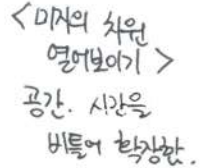 <미지의 차원
열어보이기>
공간. 시간을
비틀어 확장함.